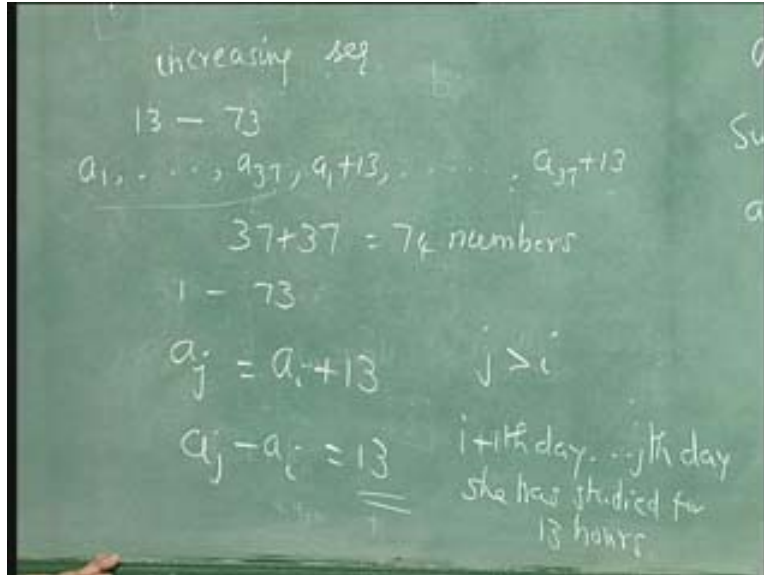 increasing seq
13 – 73
a₁, . . ., a₃₇, a₁+13, . . . . . , a₃₇+13
37+37 = 74 numbers
1 – 73
aⱼ = aᵢ+13 j > i
aⱼ – aᵢ = 13 i+1th day...jth day
she has studied for
13 hours
a
Su
a